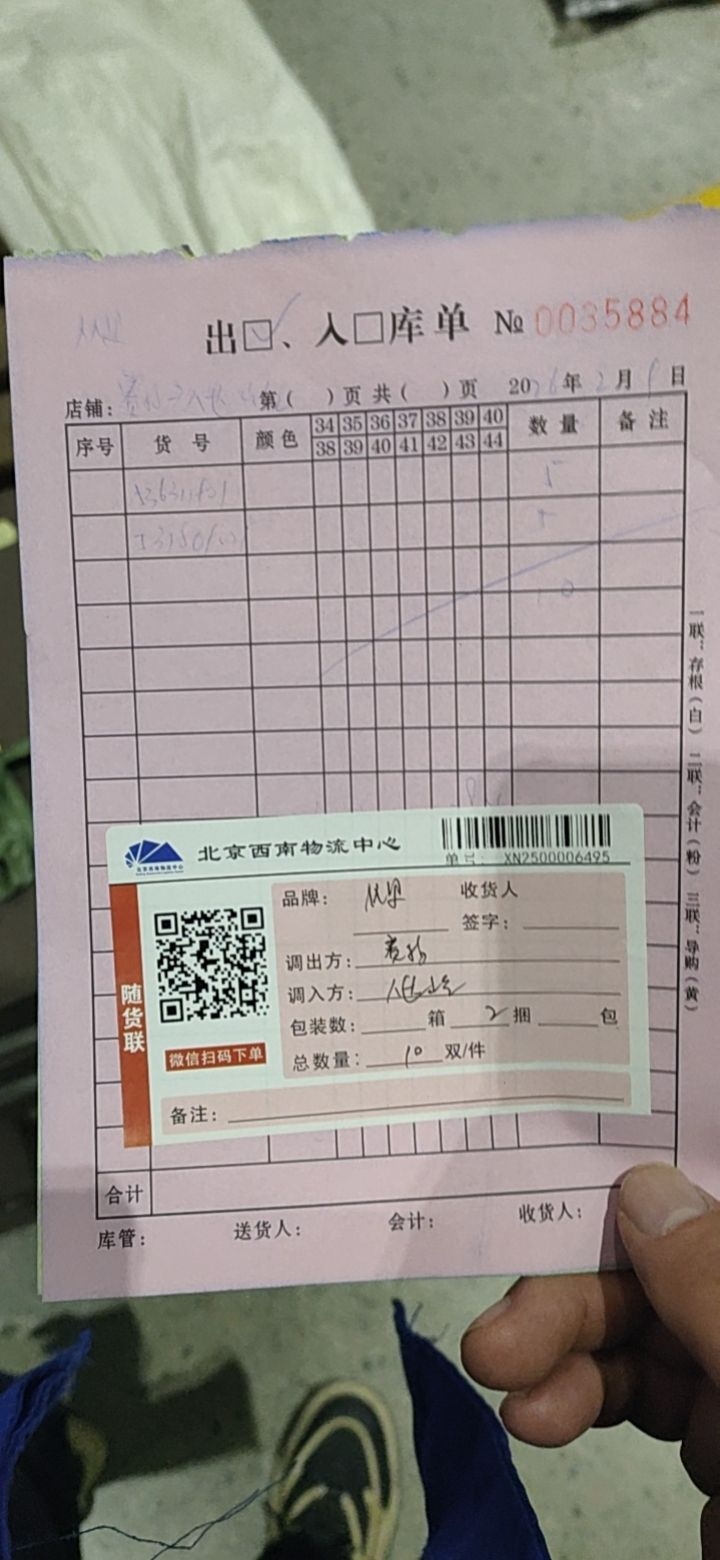 出□、入□库单 № 0035884
店铺: 第( )页 共( )页 2026年2月 日
序号 货号 颜色 34 35 36 37 38 39 40 数量 备注
38 39 40 41 42 43 44
5
5
10
一联：存根（白） 二联：会计（粉） 三联：导购（黄）
北京西南物流中心
单号: XN2500006495
随货联
微信扫码下单
品牌: 收货人
签字:
调出方:
调入方:
包装数: 箱 2 捆 包
总数量: 10 双/件
备注:
合计
库管: 送货人: 会计: 收货人: